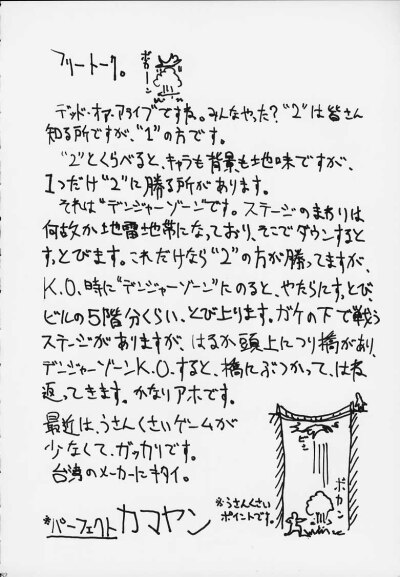 フリートーク。
ボーン
デッド・オア・アライブですね。みんなやった?"2"は皆さん
知る所ですが、"1"の方です。
"2"とくらべると、キャラも背景も地味ですが、
1つだけ"2"に勝る所があります。
それは"デンジャーゾーン"です。ステージのまわりは
何故か地雷地帯になっており、そこでダウンすると
すっとびます。これだけなら"2"の方が勝ってますが、
K.O.時に"デンジャーゾーン"にのると、やたらにすっとび、
ビルの5階分くらい、とび上ります。ガケの下で戦う
ステージがありますが、はるか頭上につり橋があり、
デンジャーゾーンK.O.すると、橋にぶつかって、はね
返ってきます。かなりアホです。
最近は、うさんくさいゲームが
少なくて、ガッカリです。
台湾のメーカーにキタイ。
*パーフェクトカマヤン
※うさんくさい
ポイントです。
ビシ
ボカン